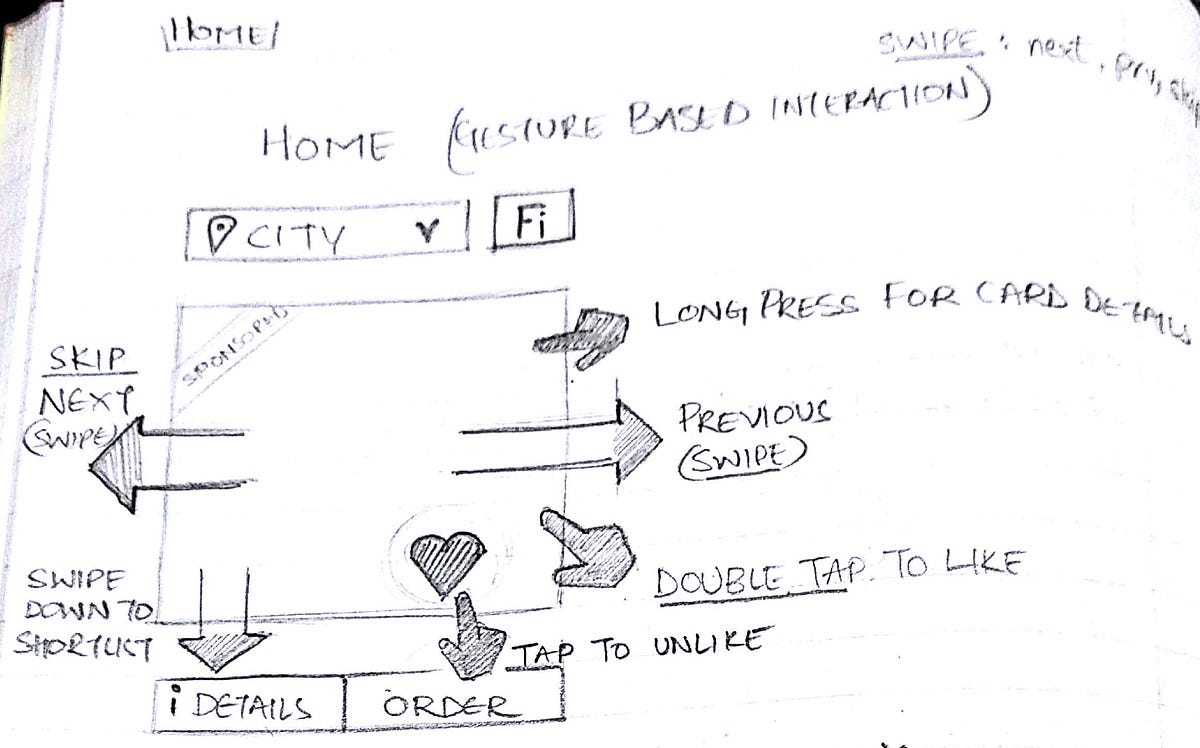 HOME
SWIPE : next, prv, skip
HOME (GESTURE BASED INTERACTION)
CITY
Fi
SPONSORED
LONG PRESS FOR CARD DETAILS
SKIP
NEXT
(SWIPE)
PREVIOUS
(SWIPE)
DOUBLE TAP TO LIKE
SWIPE
DOWN TO
SHORTLIST
TAP TO UNLIKE
i DETAILS
ORDER